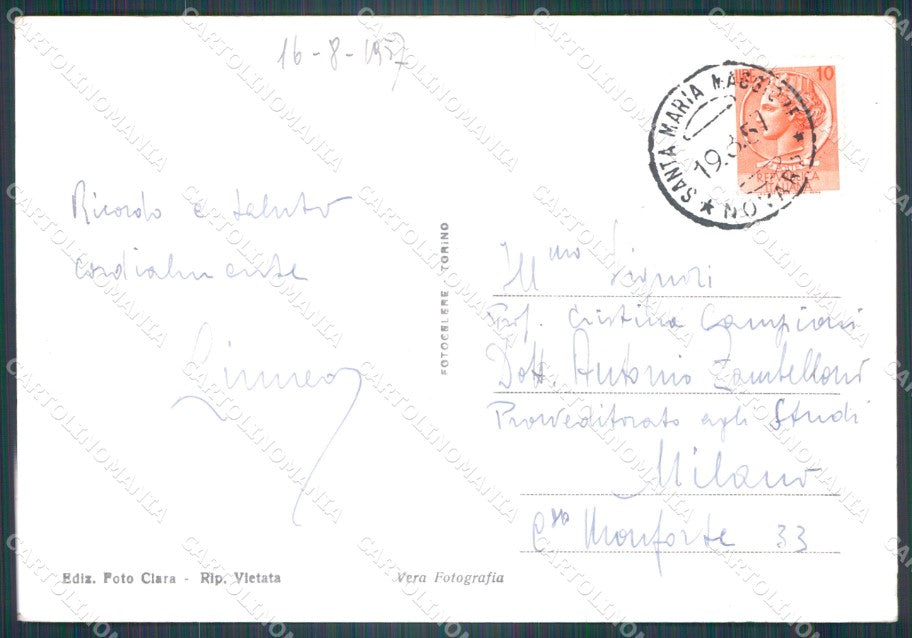 16-8-1957
10
SANTA MARIA MAGGIORE
19.8.57
NOVARA
Ricordo e saluto
cordialmente
Ill.mo Signori
Prof. Cristina Campioni
Dott. Antonio Zambelloni
Provveditorato agli Studi
Milano
C.so Monforte 33
FOTOCELERE - TORINO
Ediz. Foto Clara - Rip. Vietata
Vera Fotografia
CARTOLINOMANIA